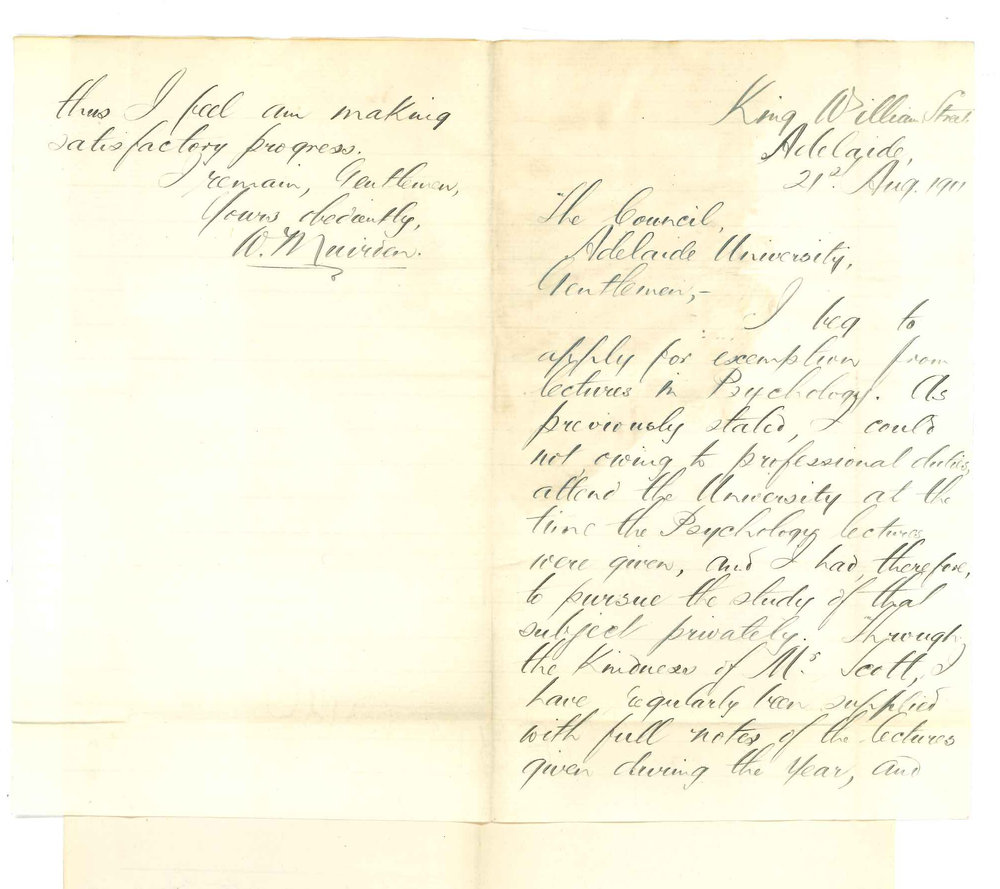 King William Street
Adelaide,
21st. Aug. 1911
The Council,
Adelaide University,
Gentlemen,-
I beg to
apply for exemption from
lectures in Psychology. As
previously stated, I could
not, owing to professional duties,
attend the University at the
time the Psychology lectures
were given, and I had, therefore,
to pursue the study of that
subject privately. Through
the kindness of Mr. Scott, I
have regularly been supplied
with full notes of the lectures
given during the year, and
thus I feel am making
satisfactory progress.
I remain, Gentlemen,
Yours obediently,
W.